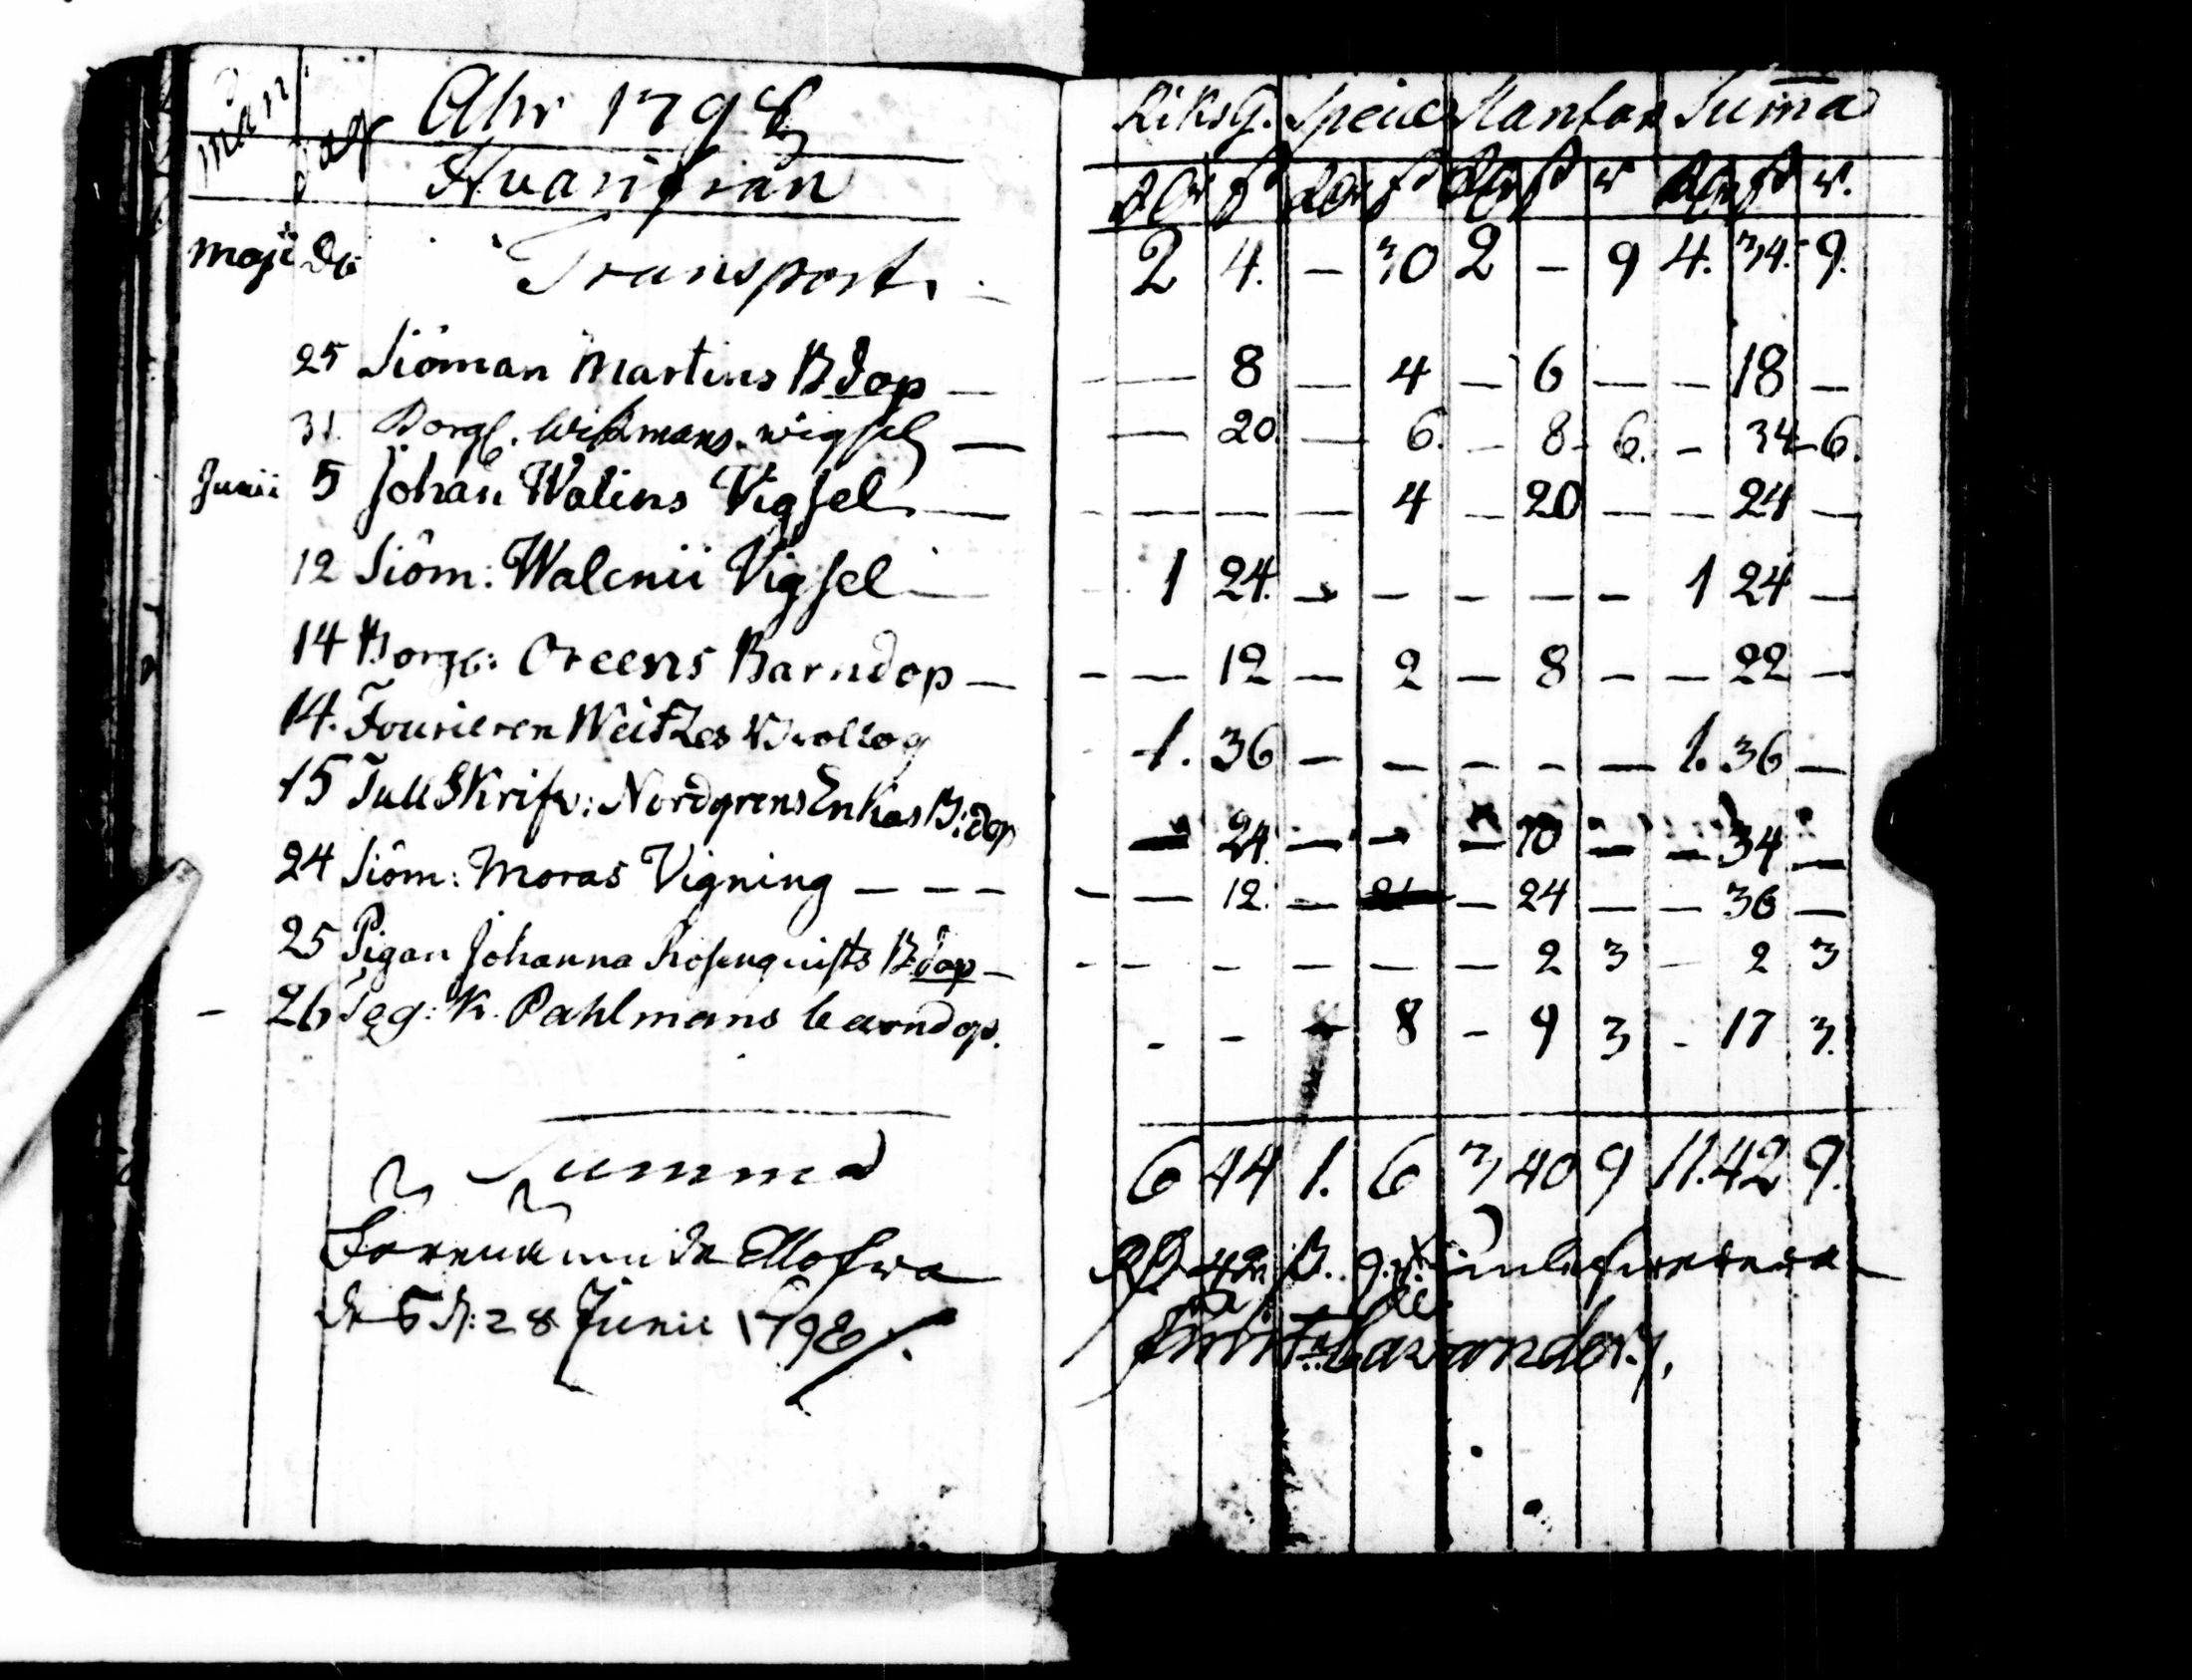 Mån dag Åhr 1798 RiksG. Specie Slantar Summa
Hvarifrån Rdr ß Rdr ß Rdr ß r Rdr ß r.
Maji Transport. — 2 4. — 30 2 — 9 4. 34. 9.
25 Siöman Martins Bdop — — 8 — 4 — 6 — — 18 —
31. Borg. Wikmans wigsel — — 20. — 6. — 8 6. — 34 6.
Junii 5 Johan Walins Vigsel — — — — 4 — 20 — — 24 —
12 Siöm: Walenii Vigsel — 1 24. — — — — — 1 24 —
14 Borg: Oreens Barndop — — 12 — 2 — 8 — — 22 —
14. Fourieren Weitzes Brollog 1. 36 — — — — — 1. 36 —
15 Tull Skrifv: Nordgrens Enkas B:dop — 24. — — — 10 — — 34 —
24 Siöm: Moras Vigning — — — — 12. — — 24 — — 36 —
25 Pigan Johanna Rosenquists Bdop — — — — — — 2 3 — 2 3
— 26 Seg: K. Pahlmans barndop. — — — 8 — 9 3 — 17 3.
Summa 6 44 1. 6 3 40 9 11. 42 9.
42 ß. 9 r.
28 Junii 1798